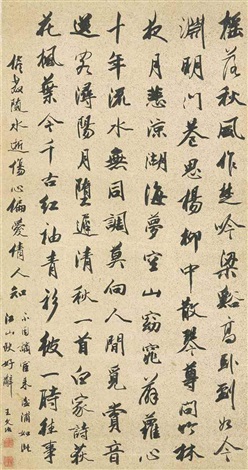 搖落秋風作楚吟梁高卧到如今
淵明門巷思楊柳中散琴尊問竹林
夜月悲涼湖海夢空山窈窕薜蘿心
十年流水無同調莫向人間覓賞音
送客潯陽月墮遲清秋一首白家詩荻
花楓葉今千古紅袖青衫彼一時往事
教隨水逝傷心偏愛倩人知
江山秋好辭 王文治